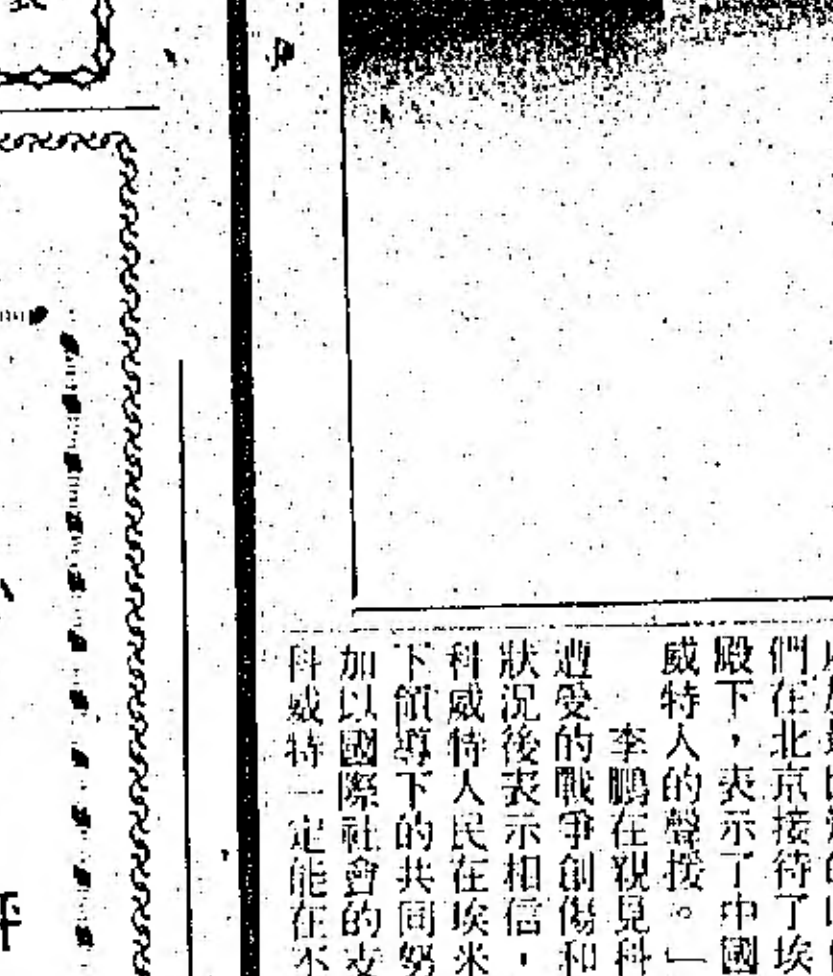 們在北京接待了埃
殿下，表示了中國
威特人的聲援。」
李鵬在親見科
遭受的戰爭創傷和
狀況後表示相信，
科威特人民在埃米
下領導下的共同努
加以國際社會的支
科威特一定能在不